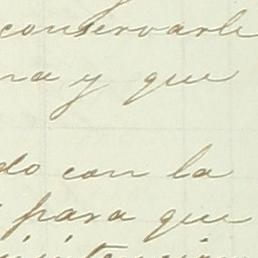 conservarle
na y que
do con la
para que